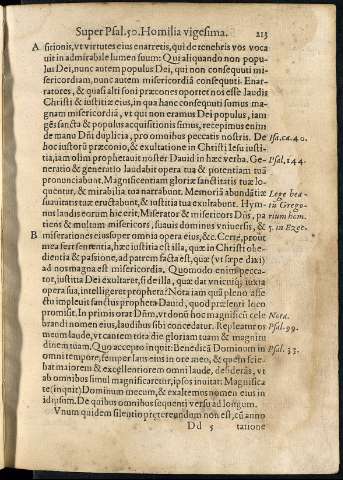 Super Psal. 50. Homilia vigesima. 213
A sitionis, vt virtutes eius enarretis, qui de tenebris vos voca
uit in admirabile lumen suum: Qui aliquando non popu-
lus Dei, nunc autem populus Dei, qui non consequuti mi-
sericordiam, nunc autem misericordiã consequuti. Enar-
ratores, & quasi alti soni præcones oportet nos esse laudis
Christi & iustitiæ eius, in qua hanc consequuti sumus mag-
nam misericordiã, vt qui non eramus Dei populus, iam
gẽs sancta & populus acquisitionis simus, recepimus enim
de manu Dñi duplicia, pro omnibus peccatis nostris. De Isa. ca. 40.
hoc iustorũ præconio, & exultatione in Christi Iesu iusti-
tia, iam olim prophetauit noster Dauid in hæc verba. Ge- Psal. 144.
neratio & generatio laudabit opera tua & potentiam tuã
pronunciabunt. Magnificentiam gloriæ sanctitatis tuæ lo-
quentur, & mirabilia tua narrabunt. Memoriã abundãtiæ Lege bea-
suauitatis tuæ eructabunt, & iustitia tua exultabunt. Hym- tũ Grego-
nus laudis eorum hic erit. Miserator & misericors Dñs, pa rium hom.
tiens & multum misericors, suauis dominus vniuersis, & 5. in Ezge.
B miserationes eius super omnia opera eius, &c. Certe, prout
mea fert sententia, hæc iustitia est illa, quæ in Christi obe-
dientia & passione, ad patrem facta est, quæ (vt sæpe dixi)
ad nos magna est misericordia. Quomodo enim pecca-
tor, iustitia Dei exultaret, si de illa, quæ dat vnicuiq; iuxta
opera sua, intelligeret propheta? Nota iam quã pleno affe
ctu impleuit sanctus propheta Dauid, quod præsenti loco
promisit. In primis orat Dñm, vt donũ hoc magnificũ cele Nota.
brandi nomen eius, laudibus sibi concedatur. Repleatur os Psal. 99.
meum laude, vt cantem tota die gloriam tuam & magnitu
dinem tuam. Quo accepto inquit: Benedicã Dominum in Psal. 33.
omni tempore, semper laus eius in ore meo, & quẽm scie-
bat maiorem & excellentiorem omni laude, desiderãs, vt
ab omnibus simul magnificaretur, ipsos inuitat: Magnifica
te (inquit) Dominum mecum, & exaltemus nomen eius in
idipsum. De quibus omnibus sequenti versu ad longum.
Vnum quidem silentio prætereundum non est, cũ anno
Dd 5 tatione